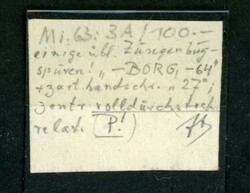 Mi. 63: 3A/100.-
einige übl. Zungenbug-
spuren! „-BORG, -64"
+ zart. handschr. „27";
zentr. volldurchstoch.
relat. (P!)